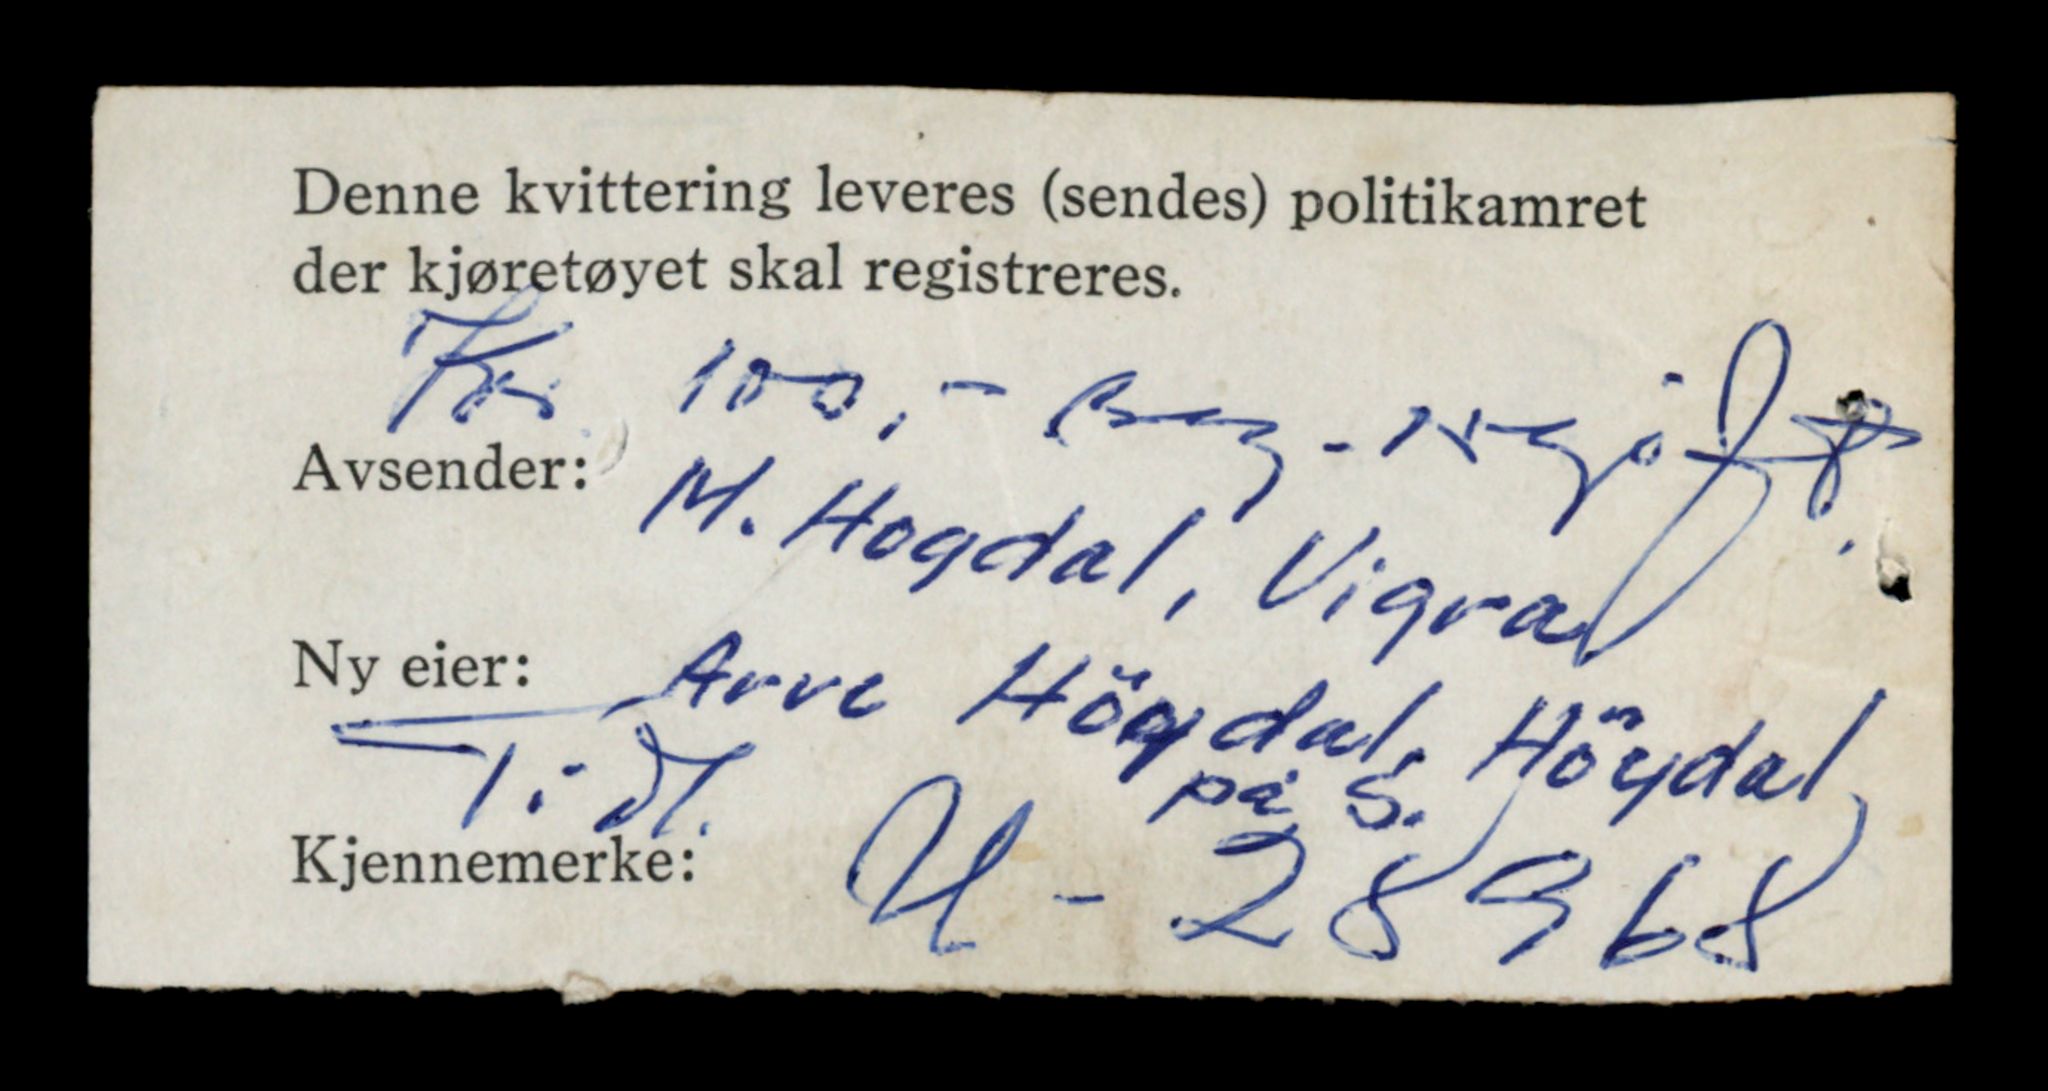 Denne kvittering leveres (sendes) politikamret
der kjøretøyet skal registreres.
Kr. 100,-
Avsender: M. Hogdal, Vigra
Ny eier: Arve Högdal, Högdal
Tidl. på S.
Kjennemerke: U - 28968